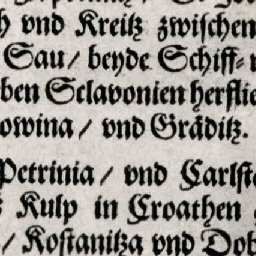 vnd Kreitz zwischen
Sau / beyde Schiff⸗
ben Sclavonien herflie
owina / vnd Gräditz.
Petrinia / vnd Carlst
Kulp in Croathen
/ Kostanitza vnd Dob